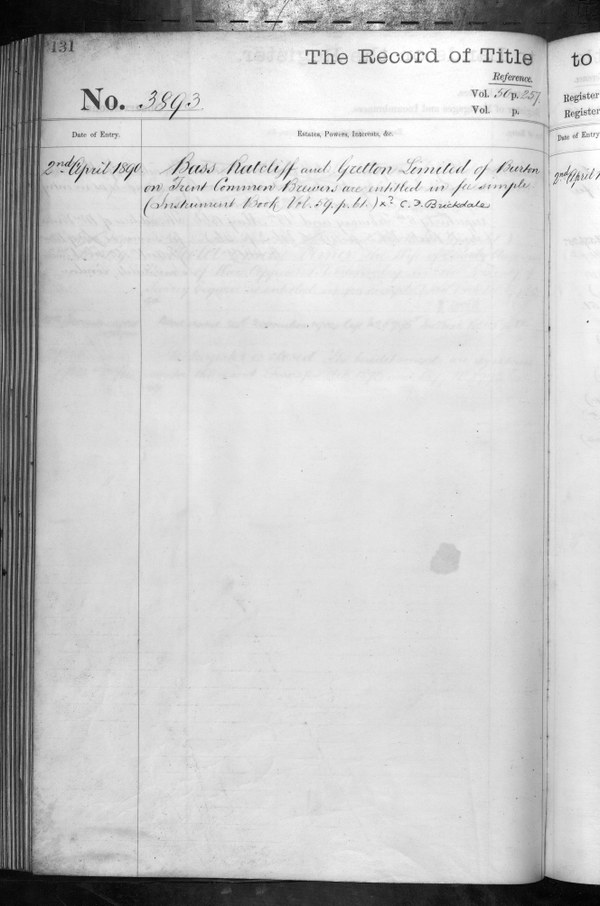 131
The Record of Title
to
Reference.
No. 3893
Vol. 50 p. 257
Vol. p.
Register
Register
Date of Entry.
Estates, Powers, Interests, &c.
Date of Entry
2nd April 1890
Bass Ratcliff and Gretton Limited of Burton
on Trent Common Brewers are entitled in fee simple
(Instrument Book Vol. 59. p. 61.) C. F. Brickdale
2nd April 1